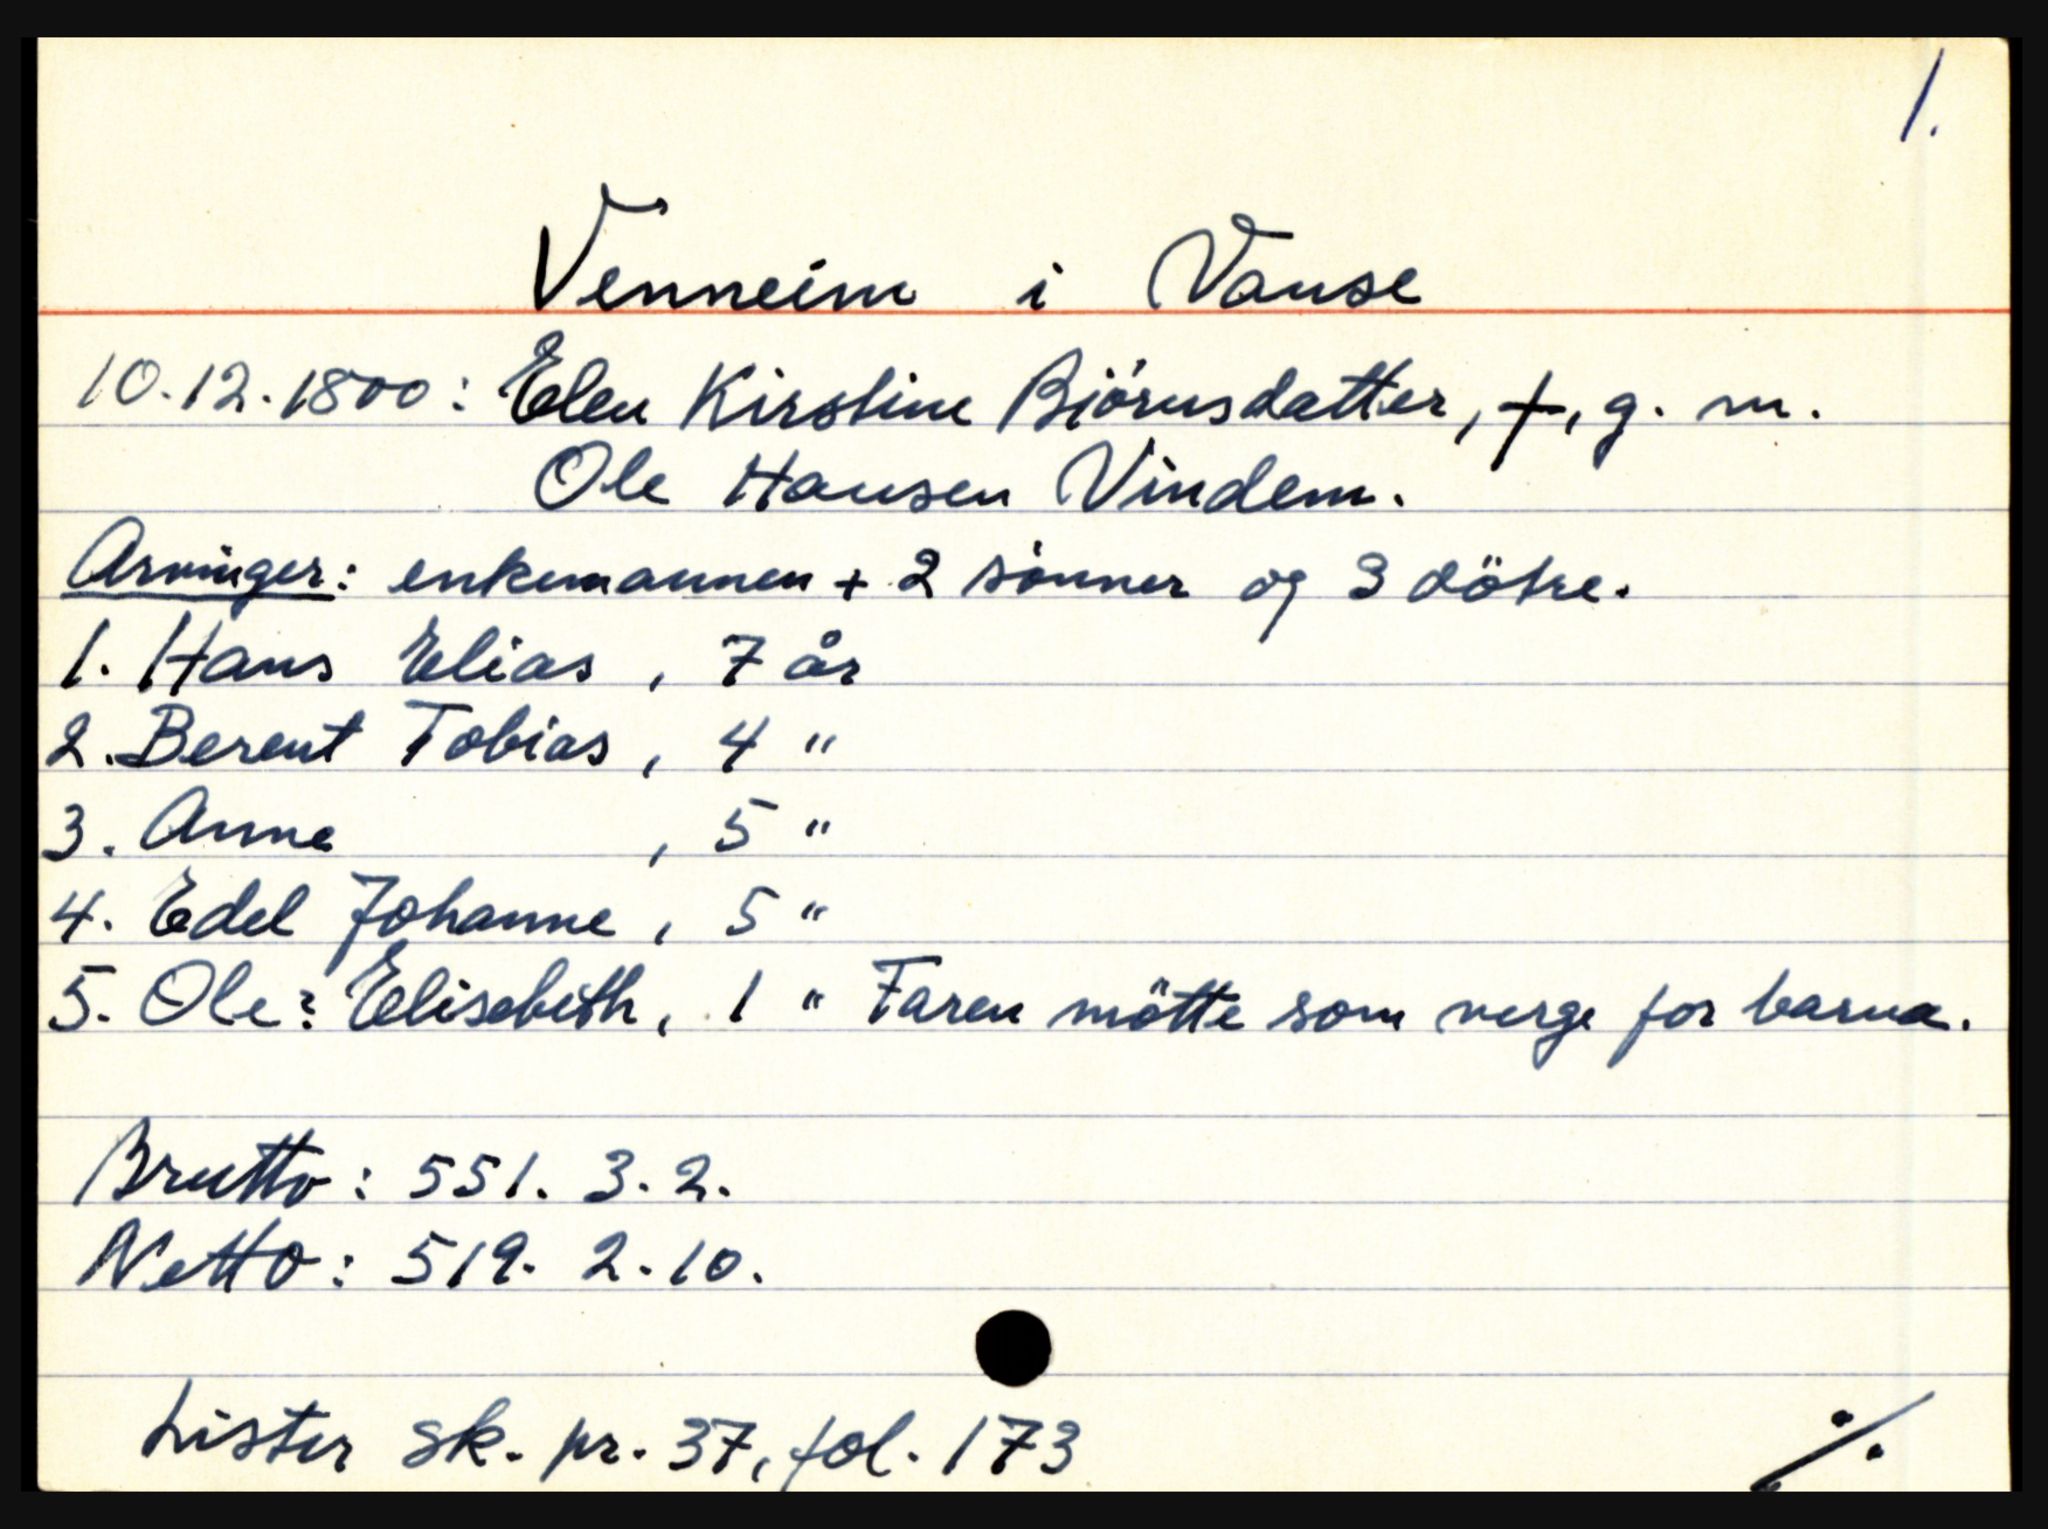 1.
Venneim i Vanse
10.12.1800: Elen Kirstine Bjørnsdatter, †, g. m.
Ole Hansen Vindem.
Arvinger: enkemannen + 2 sønner og 3 døtre.
1. Hans Elias, 7 år
2. Berent Tobias, 4 "
3. Anne, 5 "
4. Edel Johanne, 5 "
5. Ole? Elisebeth, 1 " Faren møtte som verge for barna.
Brutto: 551. 3. 2.
Netto: 519. 2. 10.
Lister sk. pr. 37, fol. 173
./.